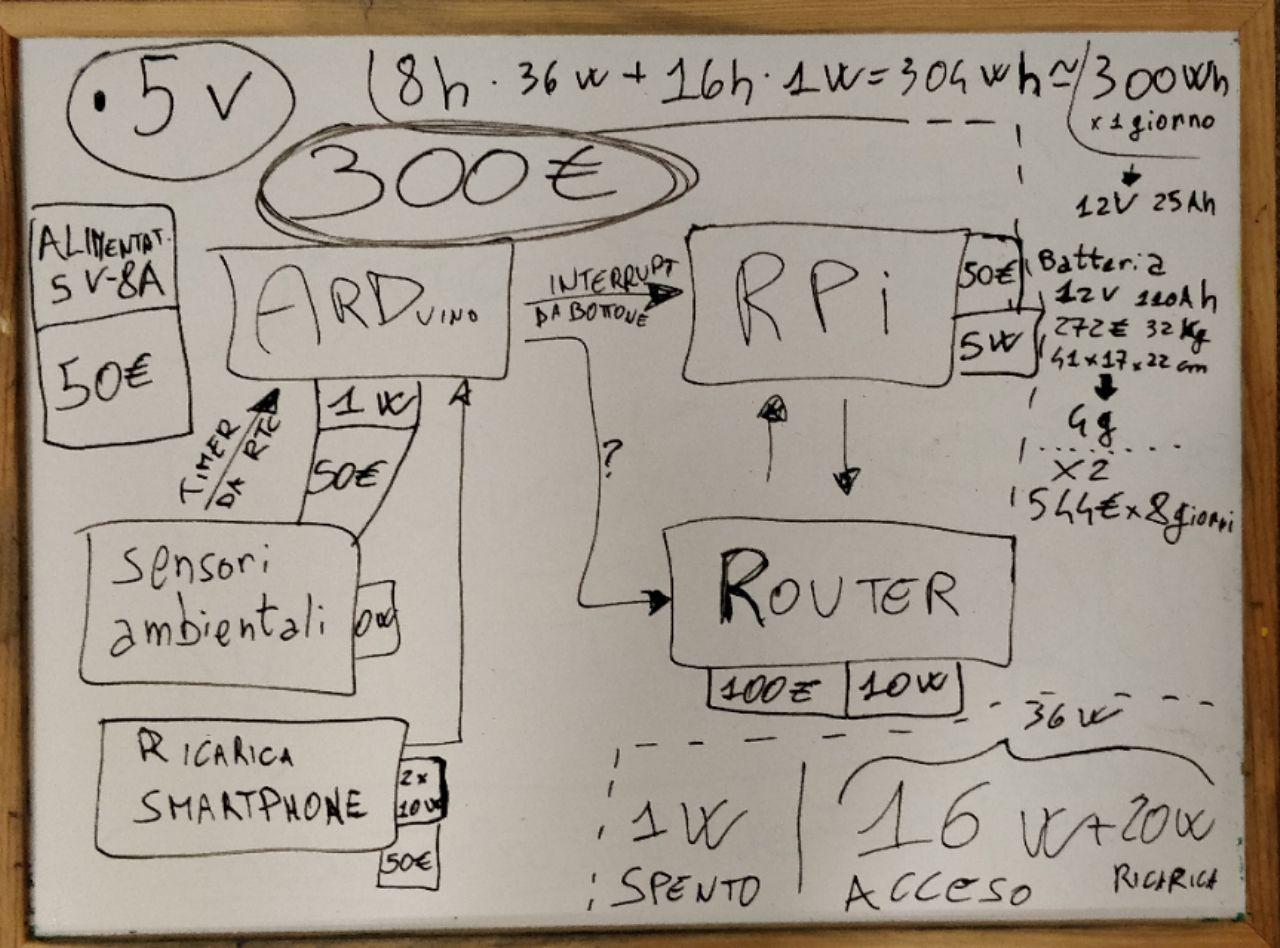 • 5 V
8h · 36 W + 16h · 1W = 304 Wh ≃ 300Wh
x 1 giorno
12V 25Ah
300 €
ALIMENTAT.
5 V-8A
50€
ARDUINO
1 W
50€
INTERRUPT
DA BOTTONE
RPi
50€
5W
Batteria
12V 110Ah
272€ 32 Kg
41x17x22 cm
4g
x2
544€ x 8 giorni
TIMER
DA RTC
?
Sensori
ambientali
0W
ROUTER
100€ 10W
RICARICA
SMARTPHONE
2x
10W
50€
36 W
1W
SPENTO
16 W + 20W
ACCESO RICARICA